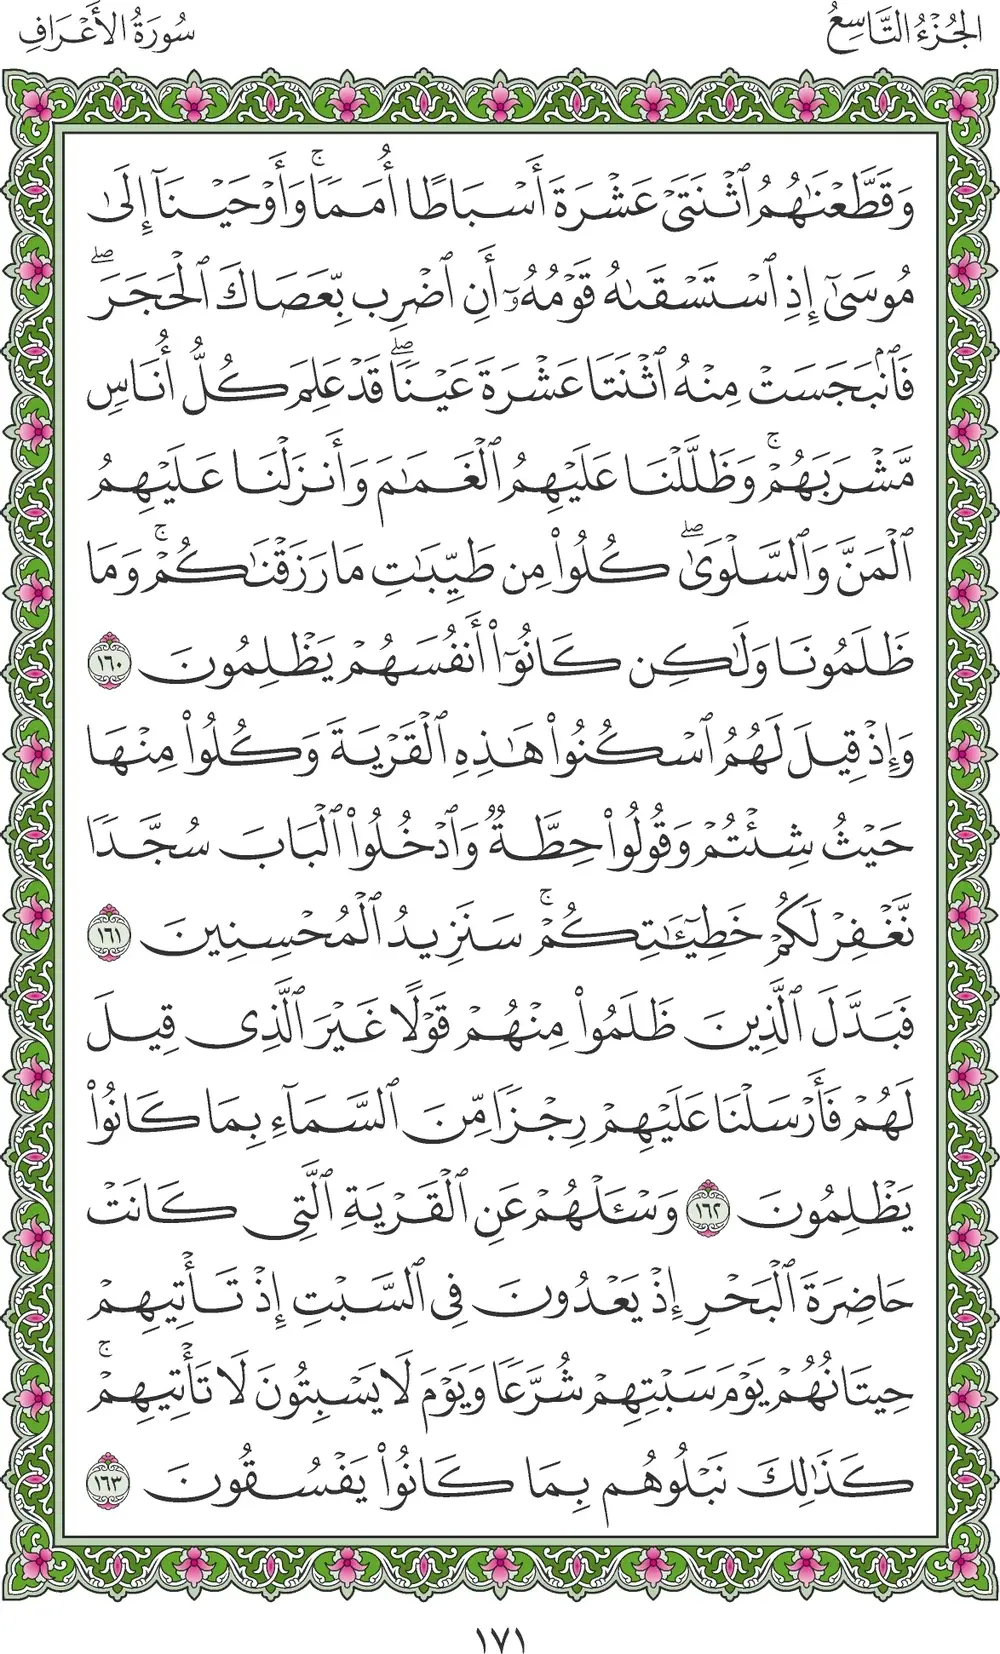 الجُزْءُ التَّاسِعُ
سُورَةُ الأَعْرَافِ
وَقَطَّعْنَٰهُمُ ٱثْنَتَىْ عَشْرَةَ أَسْبَاطًا أُمَمًا ۚ وَأَوْحَيْنَآ إِلَىٰ
مُوسَىٰٓ إِذِ ٱسْتَسْقَىٰهُ قَوْمُهُۥٓ أَنِ ٱضْرِب بِّعَصَاكَ ٱلْحَجَرَ ۖ
فَٱنۢبَجَسَتْ مِنْهُ ٱثْنَتَا عَشْرَةَ عَيْنًا ۖ قَدْ عَلِمَ كُلُّ أُنَاسٍ
مَّشْرَبَهُمْ ۚ وَظَلَّلْنَا عَلَيْهِمُ ٱلْغَمَٰمَ وَأَنزَلْنَا عَلَيْهِمُ
ٱلْمَنَّ وَٱلسَّلْوَىٰ ۖ كُلُوا۟ مِن طَيِّبَٰتِ مَا رَزَقْنَٰكُمْ ۚ وَمَا
ظَلَمُونَا وَلَٰكِن كَانُوٓا۟ أَنفُسَهُمْ يَظْلِمُونَ ١٦٠
وَإِذْ قِيلَ لَهُمُ ٱسْكُنُوا۟ هَٰذِهِ ٱلْقَرْيَةَ وَكُلُوا۟ مِنْهَا
حَيْثُ شِئْتُمْ وَقُولُوا۟ حِطَّةٌ وَٱدْخُلُوا۟ ٱلْبَابَ سُجَّدًا
نَّغْفِرْ لَكُمْ خَطِيٓـَٰٔتِكُمْ ۚ سَنَزِيدُ ٱلْمُحْسِنِينَ ١٦١
فَبَدَّلَ ٱلَّذِينَ ظَلَمُوا۟ مِنْهُمْ قَوْلًا غَيْرَ ٱلَّذِى قِيلَ
لَهُمْ فَأَرْسَلْنَا عَلَيْهِمْ رِجْزًا مِّنَ ٱلسَّمَآءِ بِمَا كَانُوا۟
يَظْلِمُونَ ١٦٢ وَسْـَٔلْهُمْ عَنِ ٱلْقَرْيَةِ ٱلَّتِى كَانَتْ
حَاضِرَةَ ٱلْبَحْرِ إِذْ يَعْدُونَ فِى ٱلسَّبْتِ إِذْ تَأْتِيهِمْ
حِيتَانُهُمْ يَوْمَ سَبْتِهِمْ شُرَّعًا وَيَوْمَ لَا يَسْبِتُونَ لَا تَأْتِيهِمْ ۚ
كَذَٰلِكَ نَبْلُوهُم بِمَا كَانُوا۟ يَفْسُقُونَ ١٦٣
١٧١